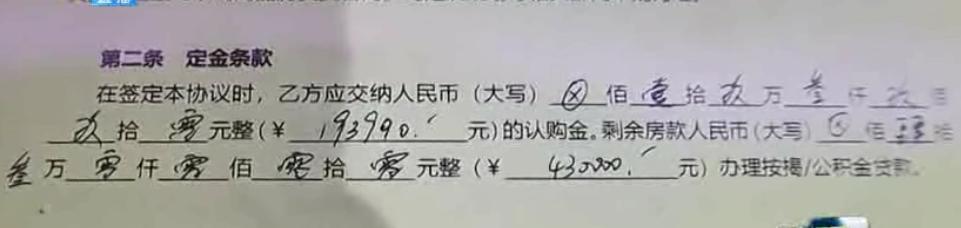 第二条 定金条款
在签定本协议时，乙方应交纳人民币（大写）ⓧ佰壹拾玖万叁仟玖百
玖拾零元整(￥193990.元)的认购金。剩余房款人民币(大写)ⓧ佰肆拾
叁万零仟零佰零拾零元整（￥430000.元）办理按揭/公积金贷款。